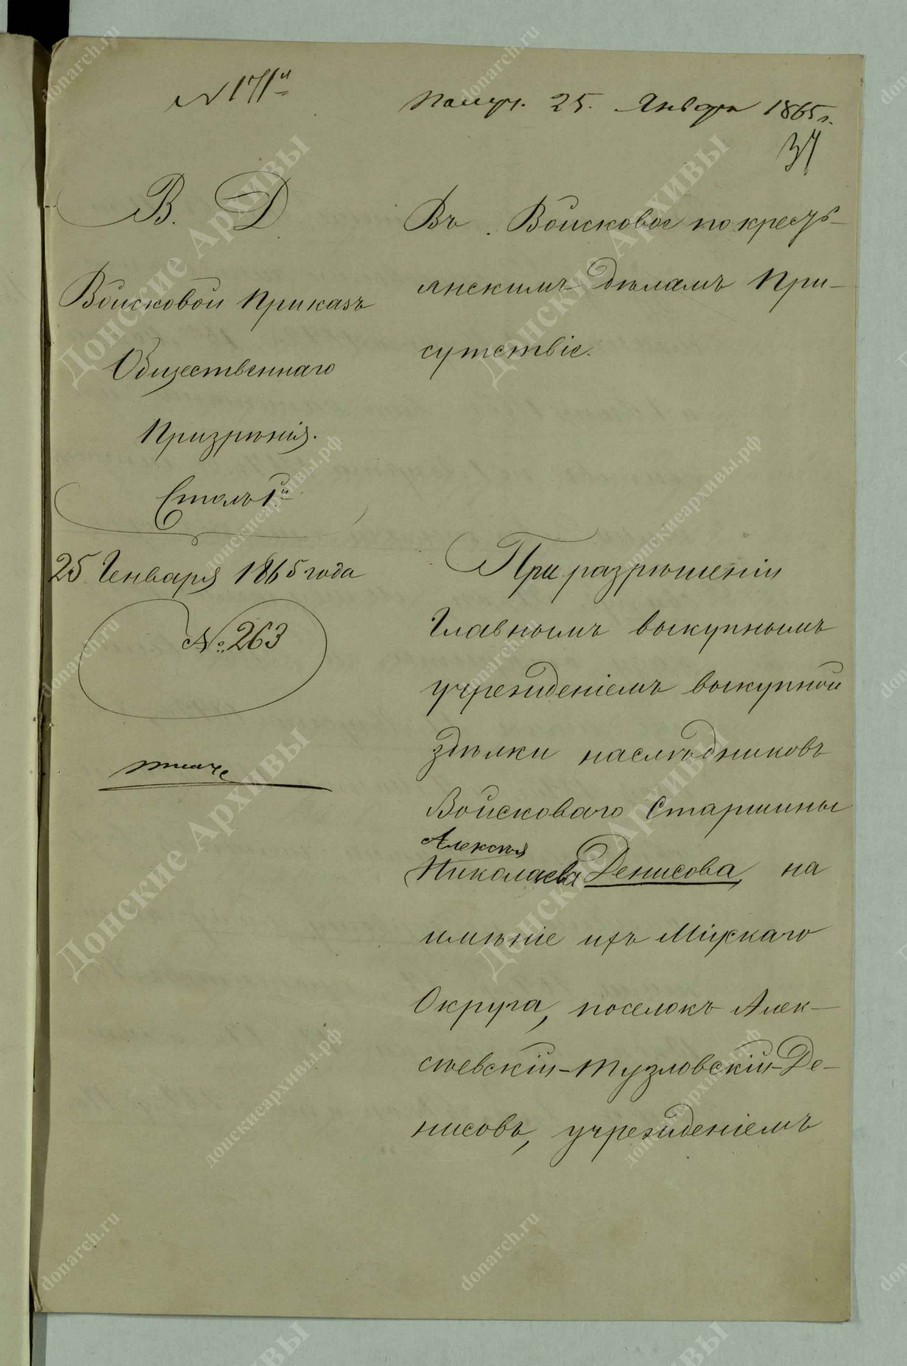 № 171й
Получ. 25. Января 1865 г.
37
В. Д
Войсковой Приказъ
Общественнаго
Призрѣнія.
Столъ 1й
25 Генваря 1865 года
№. 263
Въ Войсковое по кресть-
янскимъ Дѣламъ При-
сутствіе.
При разрѣшеніи
Главнымъ выкупнымъ
учрежденіемъ выкупной
здѣлки наслѣдниковъ
Войсковаго Старшины
Алексѣя
Николаева Денисова, на
имѣніе ихъ Міускаго
Округа, поселокъ Алек-
сѣевскій-Тузловскій-Де-
нисовъ, учрежденіемъ
Донские Архивы
donarch.ru
донскиеархивы.рф